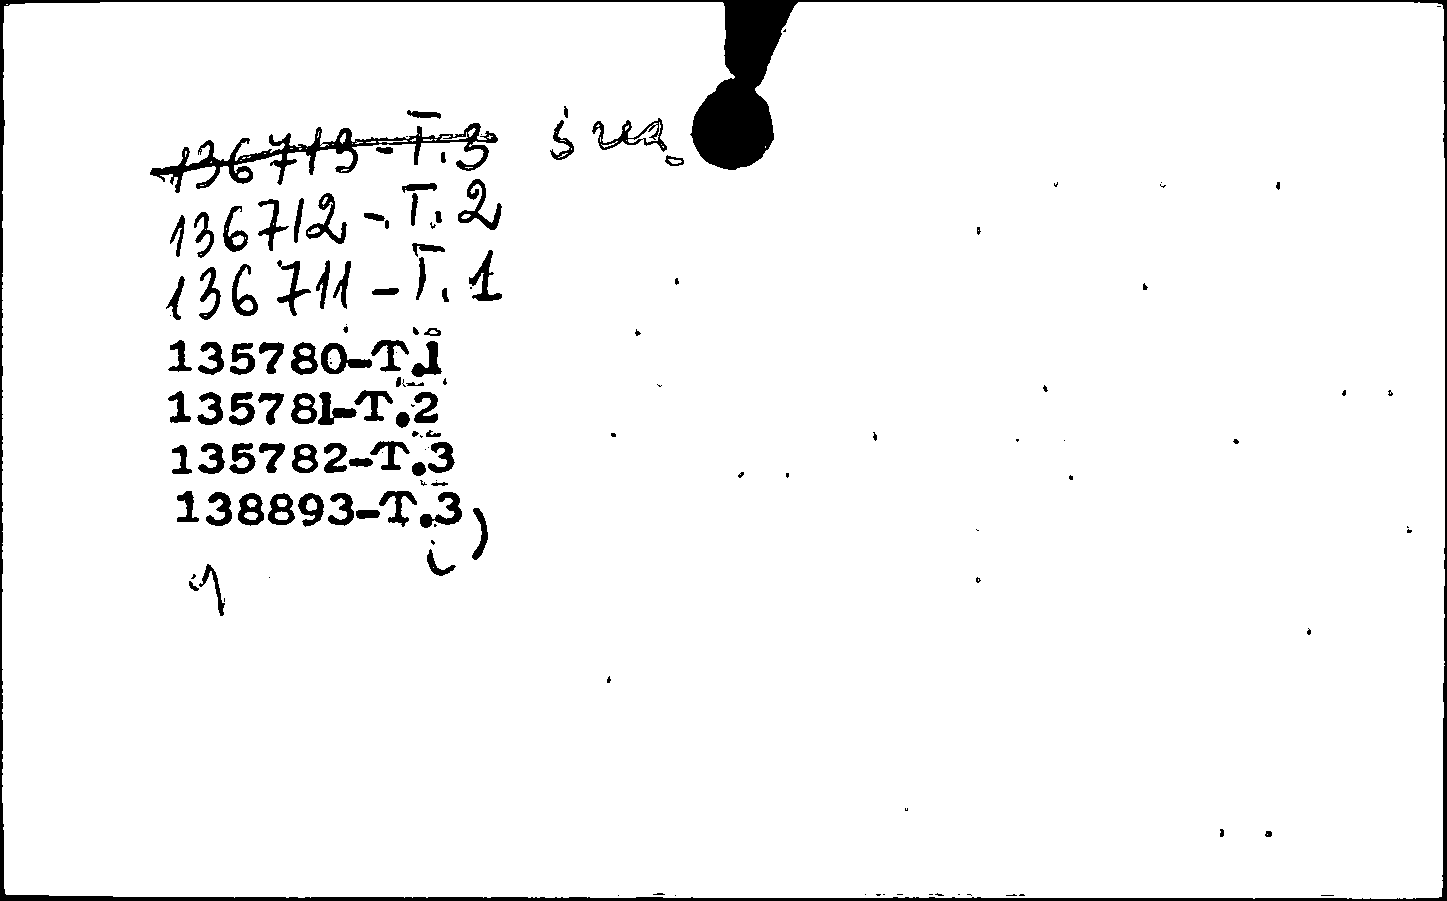 136713-Т.3
136712-Т.2
136711-Т.1
135780-Т.1
135781-Т.2
135782-Т.3
138893-Т.3